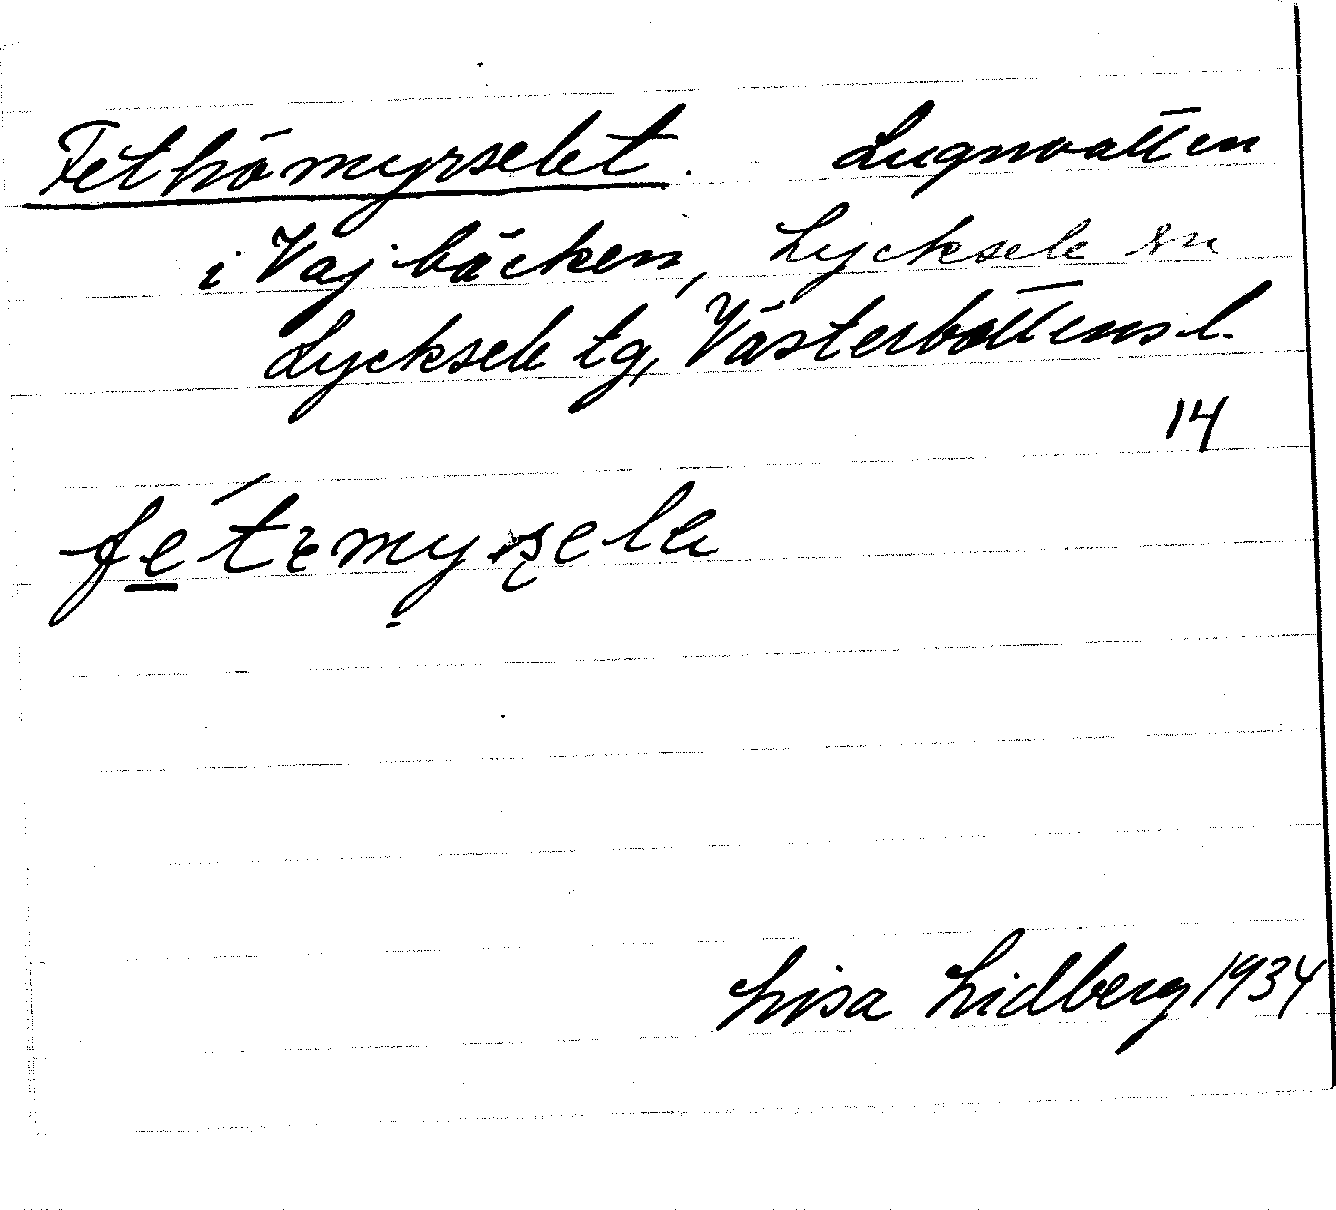 Fethömyrselet. Lugnvatten
i Vajbäcken, Lycksele sn
Lycksele tg, Västerbottens l.
14
Lisa Lidberg 1934